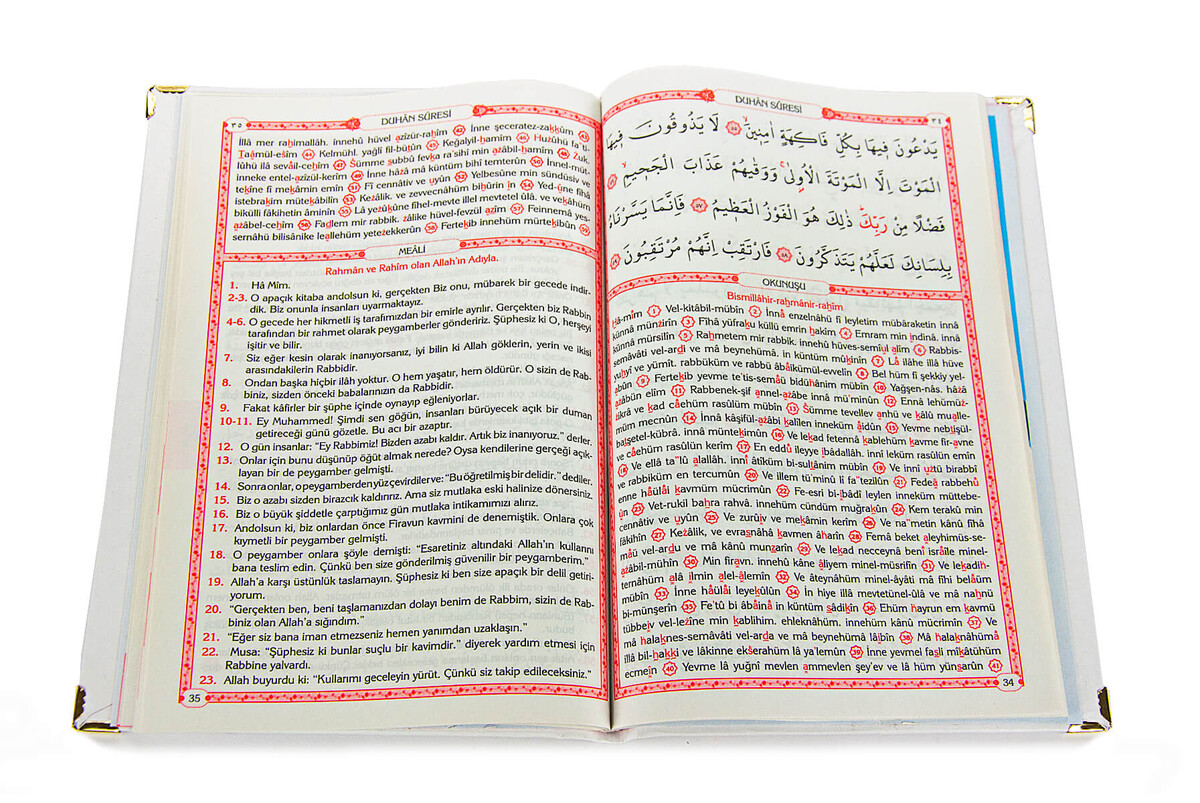 DUHÂN SÛRESİ
٣٤
يَدْعُونَ فِيهَا بِكُلِّ فَاكِهَةٍ اٰمِنِينَۙ ﴿٥٥﴾ لَا يَذُوقُونَ فِيهَا
الْمَوْتَ اِلَّا الْمَوْتَةَ الْاُولٰىۚ وَوَقٰيهُمْ عَذَابَ الْجَحِيمِۙ ﴿٥٦﴾
فَضْلًا مِنْ رَبِّكَۜ ذٰلِكَ هُوَ الْفَوْزُ الْعَظِيمُ ﴿٥٧﴾ فَاِنَّمَا يَسَّرْنَاهُ
بِلِسَانِكَ لَعَلَّهُمْ يَتَذَكَّرُونَ ﴿٥٨﴾ فَارْتَقِبْ اِنَّهُمْ مُرْتَقِبُونَ ﴿٥٩﴾
OKUNUŞU
Bismillâhir-raḥmânir-raḥîm
Hâ-mîm (1) Vel-kitâbil-mübîn (2) İnnâ enzelnâhü fî leyletim mübâraketin innâ
künnâ münzirîn (3) Fîhâ yüfraku küllü emrin ḥakîm (4) Emram min ındinâ. innâ
künnâ mürsilîn (5) Raḥmetem mir rabbik. innehû hüves-semîul alîm (6) Rabbis-
semâvâti vel-ardi ve mâ beynehümâ. in küntüm mûkınîn (7) Lâ ilâhe illâ hüve
yuḥyî ve yümît. rabbüküm ve rabbü âbâikümül-evvelîn (8) Bel hüm fî şekkiy yel-
abûn (9) Fertekib yevme te'tis-semâü bidühânim mübîn (10) Yağşen-nâs. hâzâ
azâbün elîm (11) Rabbenek-şif annel-azâbe innâ mü'minûn (12) Ennâ lehümüz-
zikrâ ve kad câehüm rasûlün mübîn (13) Sümme tevellev anhü ve kâlû mualle-
müm mecnûn (14) İnnâ kâşifül-azâbi kalîlen inneküm âidûn (15) Yevme nebtişül-
batşetel-kübrâ. innâ müntekimûn (16) Ve lekad fetennâ kablehüm kavme fir-avne
ve câehüm rasûlün kerîm (17) En eddû ileyye ıbâdallâh. innî leküm rasûlün emîn
(18) Ve ellâ ta''lû alallâh. innî âtîküm bi-sulţânim mübîn (19) Ve innî uztü birabbî
ve rabbiküm en tercumûn (20) Ve illem tü'minû lî fa''tezilûn (21) Fedeâ rabbehû
enne hâülâi kavmüm mücrimûn (22) Fe-esri bi-ibâdî leylen inneküm müttebe-
ûn (23) Vet-rukil bahra rahvâ. innehüm cündüm muğrakûn (24) Kem terakû min
cennâtiv ve uyûn (25) Ve zurûıv ve mekâmin kerîm (26) Ve na''metin kânû fîhâ
fâkihîn (27) Kezâlik, ve evrasnâhâ kavmen âharîn (28) Femâ beket aleyhimüs-se-
mâü vel-ardu ve mâ kânû munzarîn (29) Ve lekad necceynâ benî isrâîle minel-
azâbil-mühîn (30) Min firavn. innehû kâne âliyem minel-müsrifîn (31) Ve lekadih-
ternâhüm alâ ilmin alel-âlemîn (32) Ve âteynâhüm minel-âyâti mâ fîhi belâüm
mübîn (33) İnne hâülâi leyekûlûn (34) İn hiye illâ mevtetünel-ûlâ ve mâ naḥnü
bi-münşerîn (35) Fe'tû bi âbâinâ in küntüm sâdikîn (36) Ehüm hayrun em kavmü
tübbeiv vel-lezîne min kablihim. ehleknâhüm. innehüm kânû mücrimîn (37) Ve
mâ halaknes-semâvâti vel-arda ve mâ beynehümâ lâibîn (38) Mâ halaknâhümâ
illâ bil-hakki ve lâkinne ekserahüm lâ ya'lemûn (39) İnne yevmel fasli mîkâtühüm
ecmeîn (40) Yevme lâ yuğnî mevlen ammevlen şey'ev ve lâ hüm yünsarûn (41)
34
DUHÂN SÛRESİ
٣٥
İllâ mer rahimallâh. innehû hüvel azîzür-rahîm (42) İnne şeceratez-zakkûm (43)
Taâmül-esîm (44) Kelmühl. yağlî fil-bütûn (45) Keğalyil-hamîm (46) Huzûhü fa'ti-
lûhü ilâ sevâil-cehîm (47) Sümme subbû fevka ra'sihî min azâbil-hamîm (48) Zuk.
inneke entel-azîzül-kerîm (49) İnne hâzâ mâ küntüm bihî temterûn (50) İnnel-müt-
tekîne fî mekâmin emîn (51) Fî cennâtiv ve uyûn (52) Yelbesûne min sündüsiv ve
istebrakım mütekâbilîn (53) Kezâlik. ve zevvecnâhüm bihûrin în (54) Yed-ûne fîhâ
bikülli fâkihetin âminîn (55) Lâ yezûkûne fîhel-mevte illel mevtetel ûlâ. ve vekâhüm
azâbel-cehîm (56) Fadlem mir rabbik. zâlike hüvel-fevzül azîm (57) Feinnemâ yes-
sernâhü bilisânike leallehüm yetezekkerûn (58) Fertekib innehüm mürtekibûn (59)
MEÂLİ
Rahmân ve Rahîm olan Allah'ın Adıyla.
1. Hâ Mîm.
2-3. O apaçık kitaba andolsun ki, gerçekten Biz onu, mübarek bir gecede indir-
dik. Biz onunla insanları uyarmaktayız.
4-6. O gecede her hikmetli iş tarafımızdan bir emirle ayrılır. Gerçekten biz Rabbin
tarafından bir rahmet olarak peygamberler göndeririz. Şüphesiz ki O, herşeyi
işitir ve bilir.
7. Siz eğer kesin olarak inanıyorsanız, iyi bilin ki Allah göklerin, yerin ve ikisi
arasındakilerin Rabbidir.
8. Ondan başka hiçbir ilâh yoktur. O hem yaşatır, hem öldürür. O sizin de Rab-
biniz, sizden önceki babalarınızın da Rabbidir.
9. Fakat kâfirler bir şüphe içinde oynayıp eğleniyorlar.
10-11. Ey Muhammed! Şimdi sen göğün, insanları bürüyecek açık bir duman
getireceği günü gözetle. Bu acı bir azaptır.
12. O gün insanlar: “Ey Rabbimiz! Bizden azabı kaldır. Artık biz inanıyoruz.” derler.
13. Onlar için bunu düşünüp öğüt almak nerede? Oysa kendilerine gerçeği açık-
layan bir de peygamber gelmişti.
14. Sonra onlar, o peygamberden yüz çevirdiler ve: “Bu öğretilmiş bir delidir.” dediler.
15. Biz o azabı sizden birazcık kaldırırız. Ama siz mutlaka eski halinize dönersiniz.
16. Biz o büyük şiddetle çarptığımız gün mutlaka intikamımızı alırız.
17. Andolsun ki, biz onlardan önce Firavun kavmini de denemiştik. Onlara çok
kıymetli bir peygamber gelmişti.
18. O peygamber onlara şöyle demişti: “Esaretiniz altındaki Allah'ın kullarını
bana teslim edin. Çünkü ben size gönderilmiş güvenilir bir peygamberim.”
19. Allah'a karşı üstünlük taslamayın. Şüphesiz ki ben size apaçık bir delil getiri-
yorum.
20. “Gerçekten ben, beni taşlamanızdan dolayı benim de Rabbim, sizin de Rab-
biniz olan Allah'a sığındım.”
21. “Eğer siz bana iman etmezseniz hemen yanımdan uzaklaşın.”
22. Musa: “Şüphesiz ki bunlar suçlu bir kavimdir.” diyerek yardım etmesi için
Rabbine yalvardı.
23. Allah buyurdu ki: “Kullarımı geceleyin yürüt. Çünkü siz takip edileceksiniz.”
35